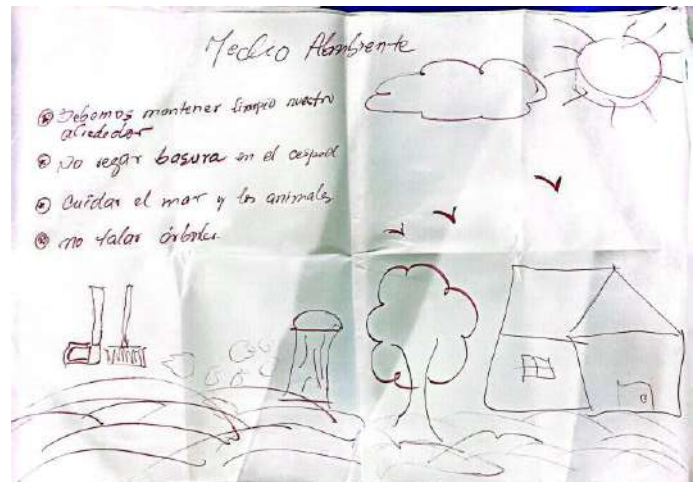 Medio Ambiente
Debemos mantener limpio nuestro
alrededor
No regar basura en el cesped
Cuidar el mar y los animales
no talar árboles